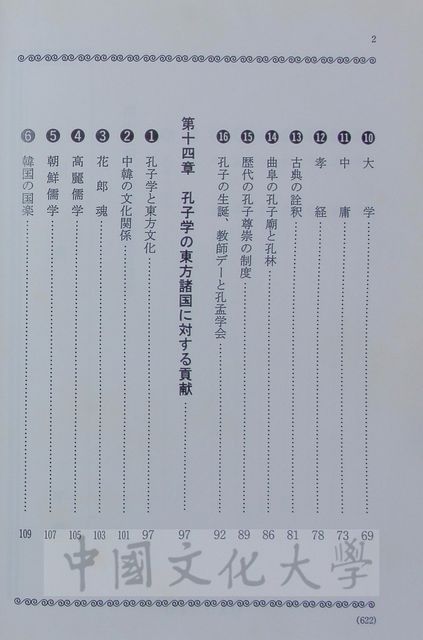 2
❿ 大学 69
⓫ 中庸 73
⓬ 孝経 78
⓭ 古典の詮釈 81
⓮ 曲阜の孔子廟と孔林 86
⓯ 歴代の孔子尊崇の制度 89
⓰ 孔子の生誕、教師デーと孔孟学会 92
第十四章 孔子学の東方諸国に対する貢献 97
❶ 孔子学と東方文化 97
❷ 中韓の文化関係 101
❸ 花郎魂 103
❹ 高麗儒学 105
❺ 朝鮮儒学 107
❻ 韓国の国楽 109
中國文化大學
(622)